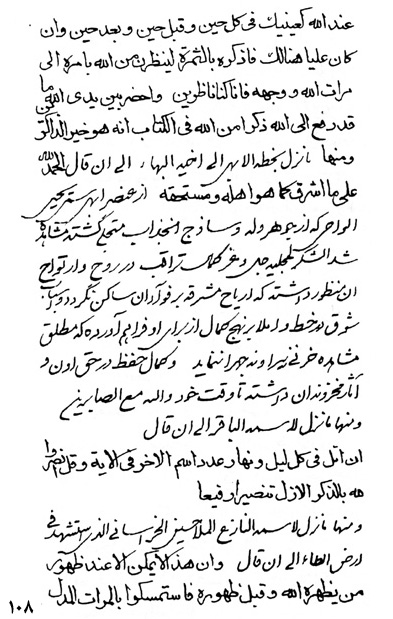 عند الله كعينيك فى كل حين و قبل حين و بعد حين وان
كان عليا هنالك فاذكره بالثمرة لينظرن من الله بامره الى
مرات الله و وجهه فانا كنا ناظرين واحضر بين يدى الله ما
قد رفع الى الله ذكرا من الله فى الكتاب انه هو خير الذاكرين
ومنها ما نزل بخطه الابهى الى اخيه البهاء الى ان قال الحمد لله
على ما اشرق كما هو اهله و مستحقه از عنصر ابهى
الواحى كه از جوهر وله و ساذج انجذاب متجلى گشته مشاهده
شد الشكر لمجليه جل و عز كمال تراقب در روح و ارتواح
ان منظور داشته كه ارياح مشرقه بر فؤاد ان ساكن نگردد و اسباب
شوق در خط و املا بر نهج كمال از براى او فراهم آورده كه مطلق
مشاهده حزنى سرا و جهرا ننمايد و كمال حفظ در حق اون و
آثار مخزونه ان داشته تا وقت خود والله مع الصابرين
ومنها ما نزل لاسمه الباقر الى ان قال
ان اتل فى كل ليل و نهار عدد اسم الاخر فى الاية و قل انصروا
الله بالذكر الازل تنصيرا رفيعا
و منها ما نزل لاسمه النازع الملا حسين الخراسانى الذى استشهد فى
ارض الطاء الى ان قال وان هذا لا يمكن الا عند ظهور
من يظهره الله و قبل ظهوره فاستمسكوا بالمرات المدل
١٠٨